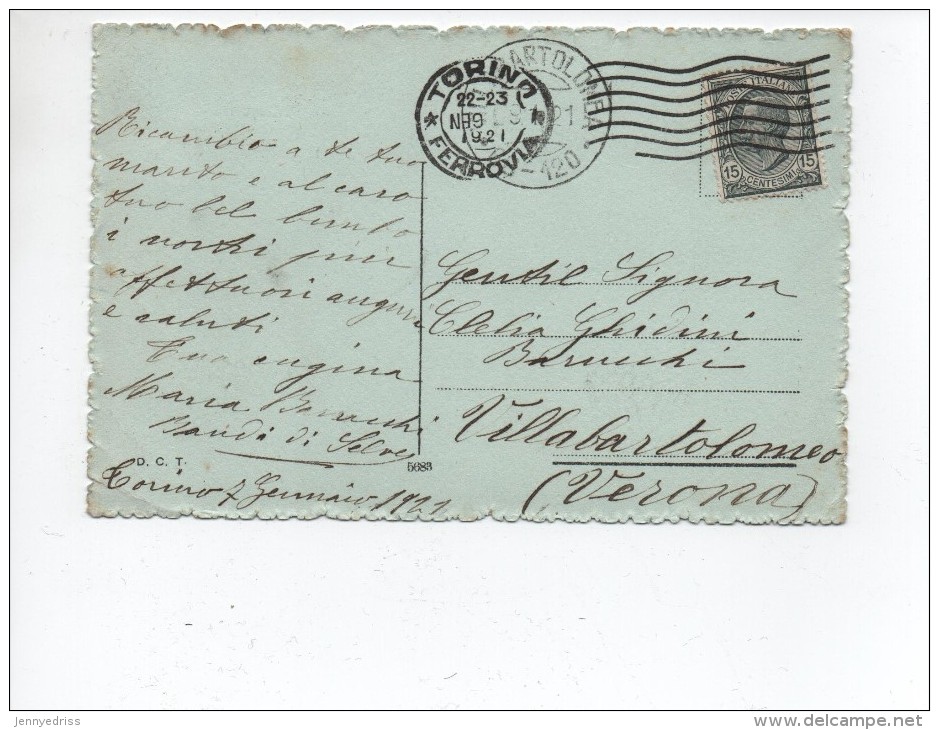 Ricambio a te tuo
marito e al caro
tuo bel bimbo
i nostri più
affettuosi auguri
e saluti
Tua cugina
Maria Barucchi
Bandi di Selve
D. C. T.
Torino 7 Gennaio 1921
5683
TORINO
22-23
1921
FERROVIA
BARTOLOMEA
21
-120
POSTE ITALIANE
15
CENTESIMI
15
Gentil Signora
Clelia Ghidini
Barucchi
Villabartolomeo
(Verona)
jennyedriss
delcampe.net